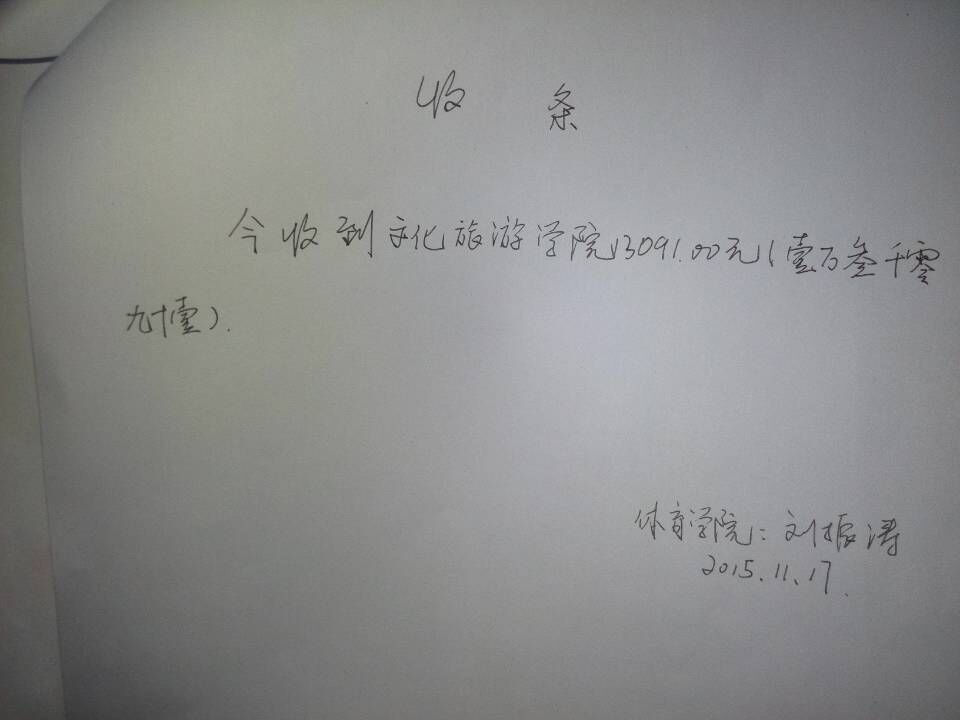 收 条
今收到文化旅游学院13091.00元(壹万叁千零
九十壹).
体育学院:刘振涛
2015.11.17.